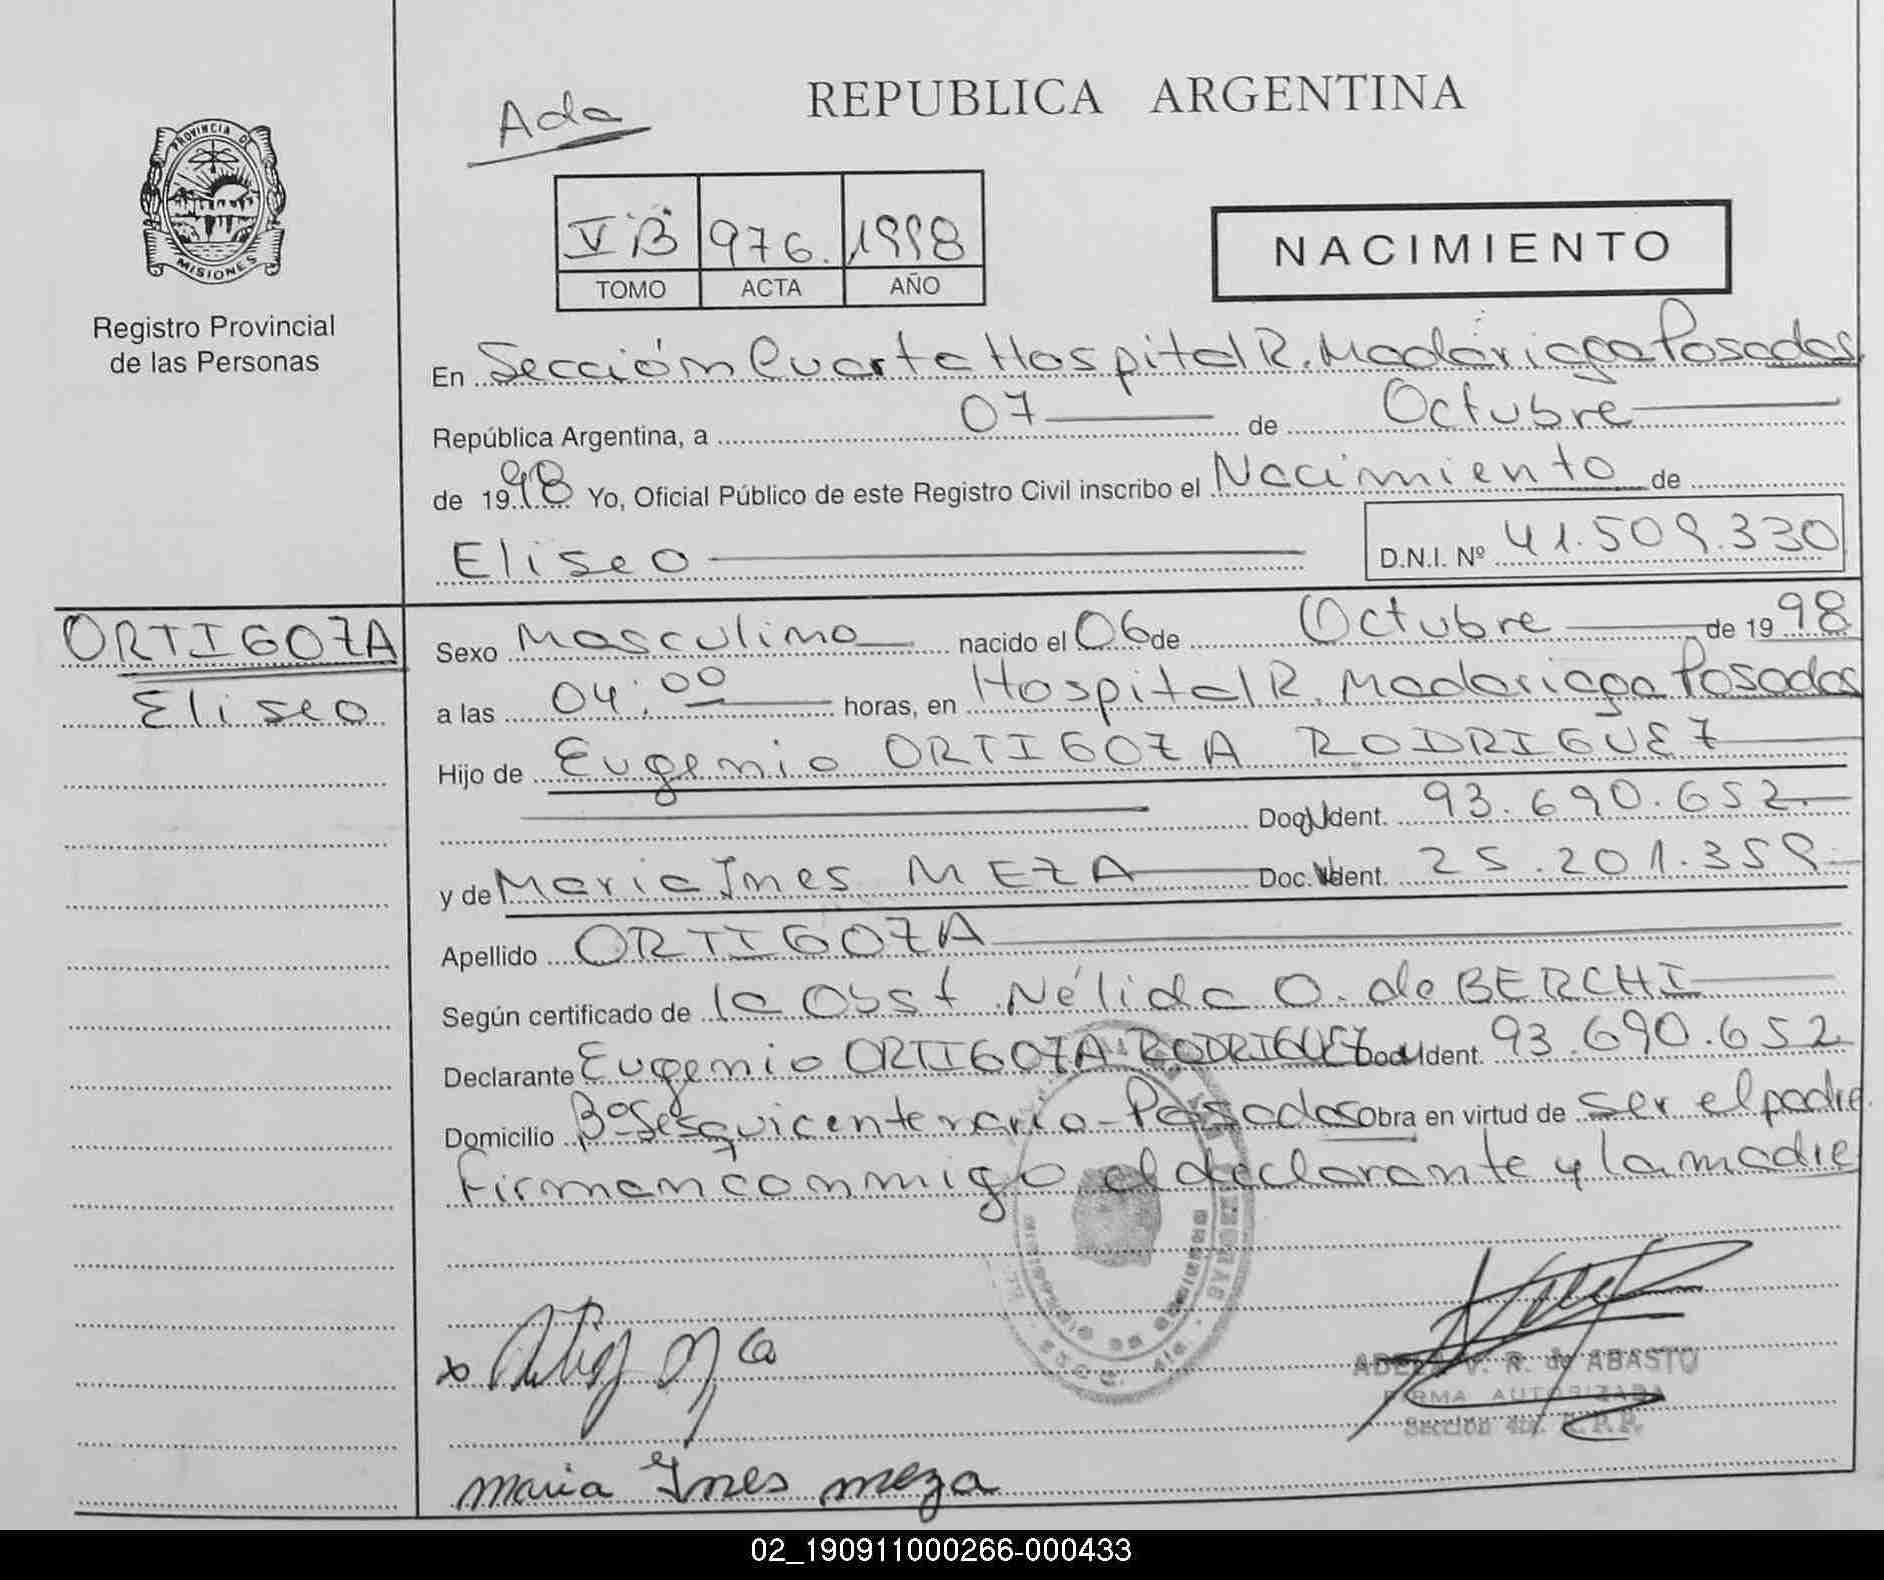 Ada
REPUBLICA ARGENTINA
PROVINCIA DE
MISIONES
Registro Provincial
de las Personas
V "B" 976. 1998
TOMO ACTA AÑO
NACIMIENTO
En Sección Cuarta Hospital R. Madariaga Posadas
República Argentina, a 07 de Octubre
de 1998 Yo, Oficial Público de este Registro Civil inscribo el Nacimiento de
Eliseo D.N.I. Nº 41.509.330
ORTIGOZA
Eliseo
Sexo Masculino nacido el 06 de Octubre de 1998
a las 04:00 horas, en Hospital R. Madariaga Posadas
Hijo de Eugenio ORTIGOZA RODRIGUEZ
Doc. Ident. 93.690.652
y de Maria Ines MEZA Doc. Ident. 25.201.359
Apellido ORTIGOZA
Según certificado de la Obst. Nélida O. de BERCHI
Declarante Eugenio ORTIGOZA RODRIGUEZ Doc. Ident. 93.690.652
Domicilio Bº Sesquicentenario - Posadas Obra en virtud de ser el padre
Firman conmigo el declarante y la madre
x Ortigoza
ADELA V. R. de ABASTO
FIRMA AUTORIZADA
Sección 4ta. R.P.P.
maria Ines meza
02_190911000266-000433